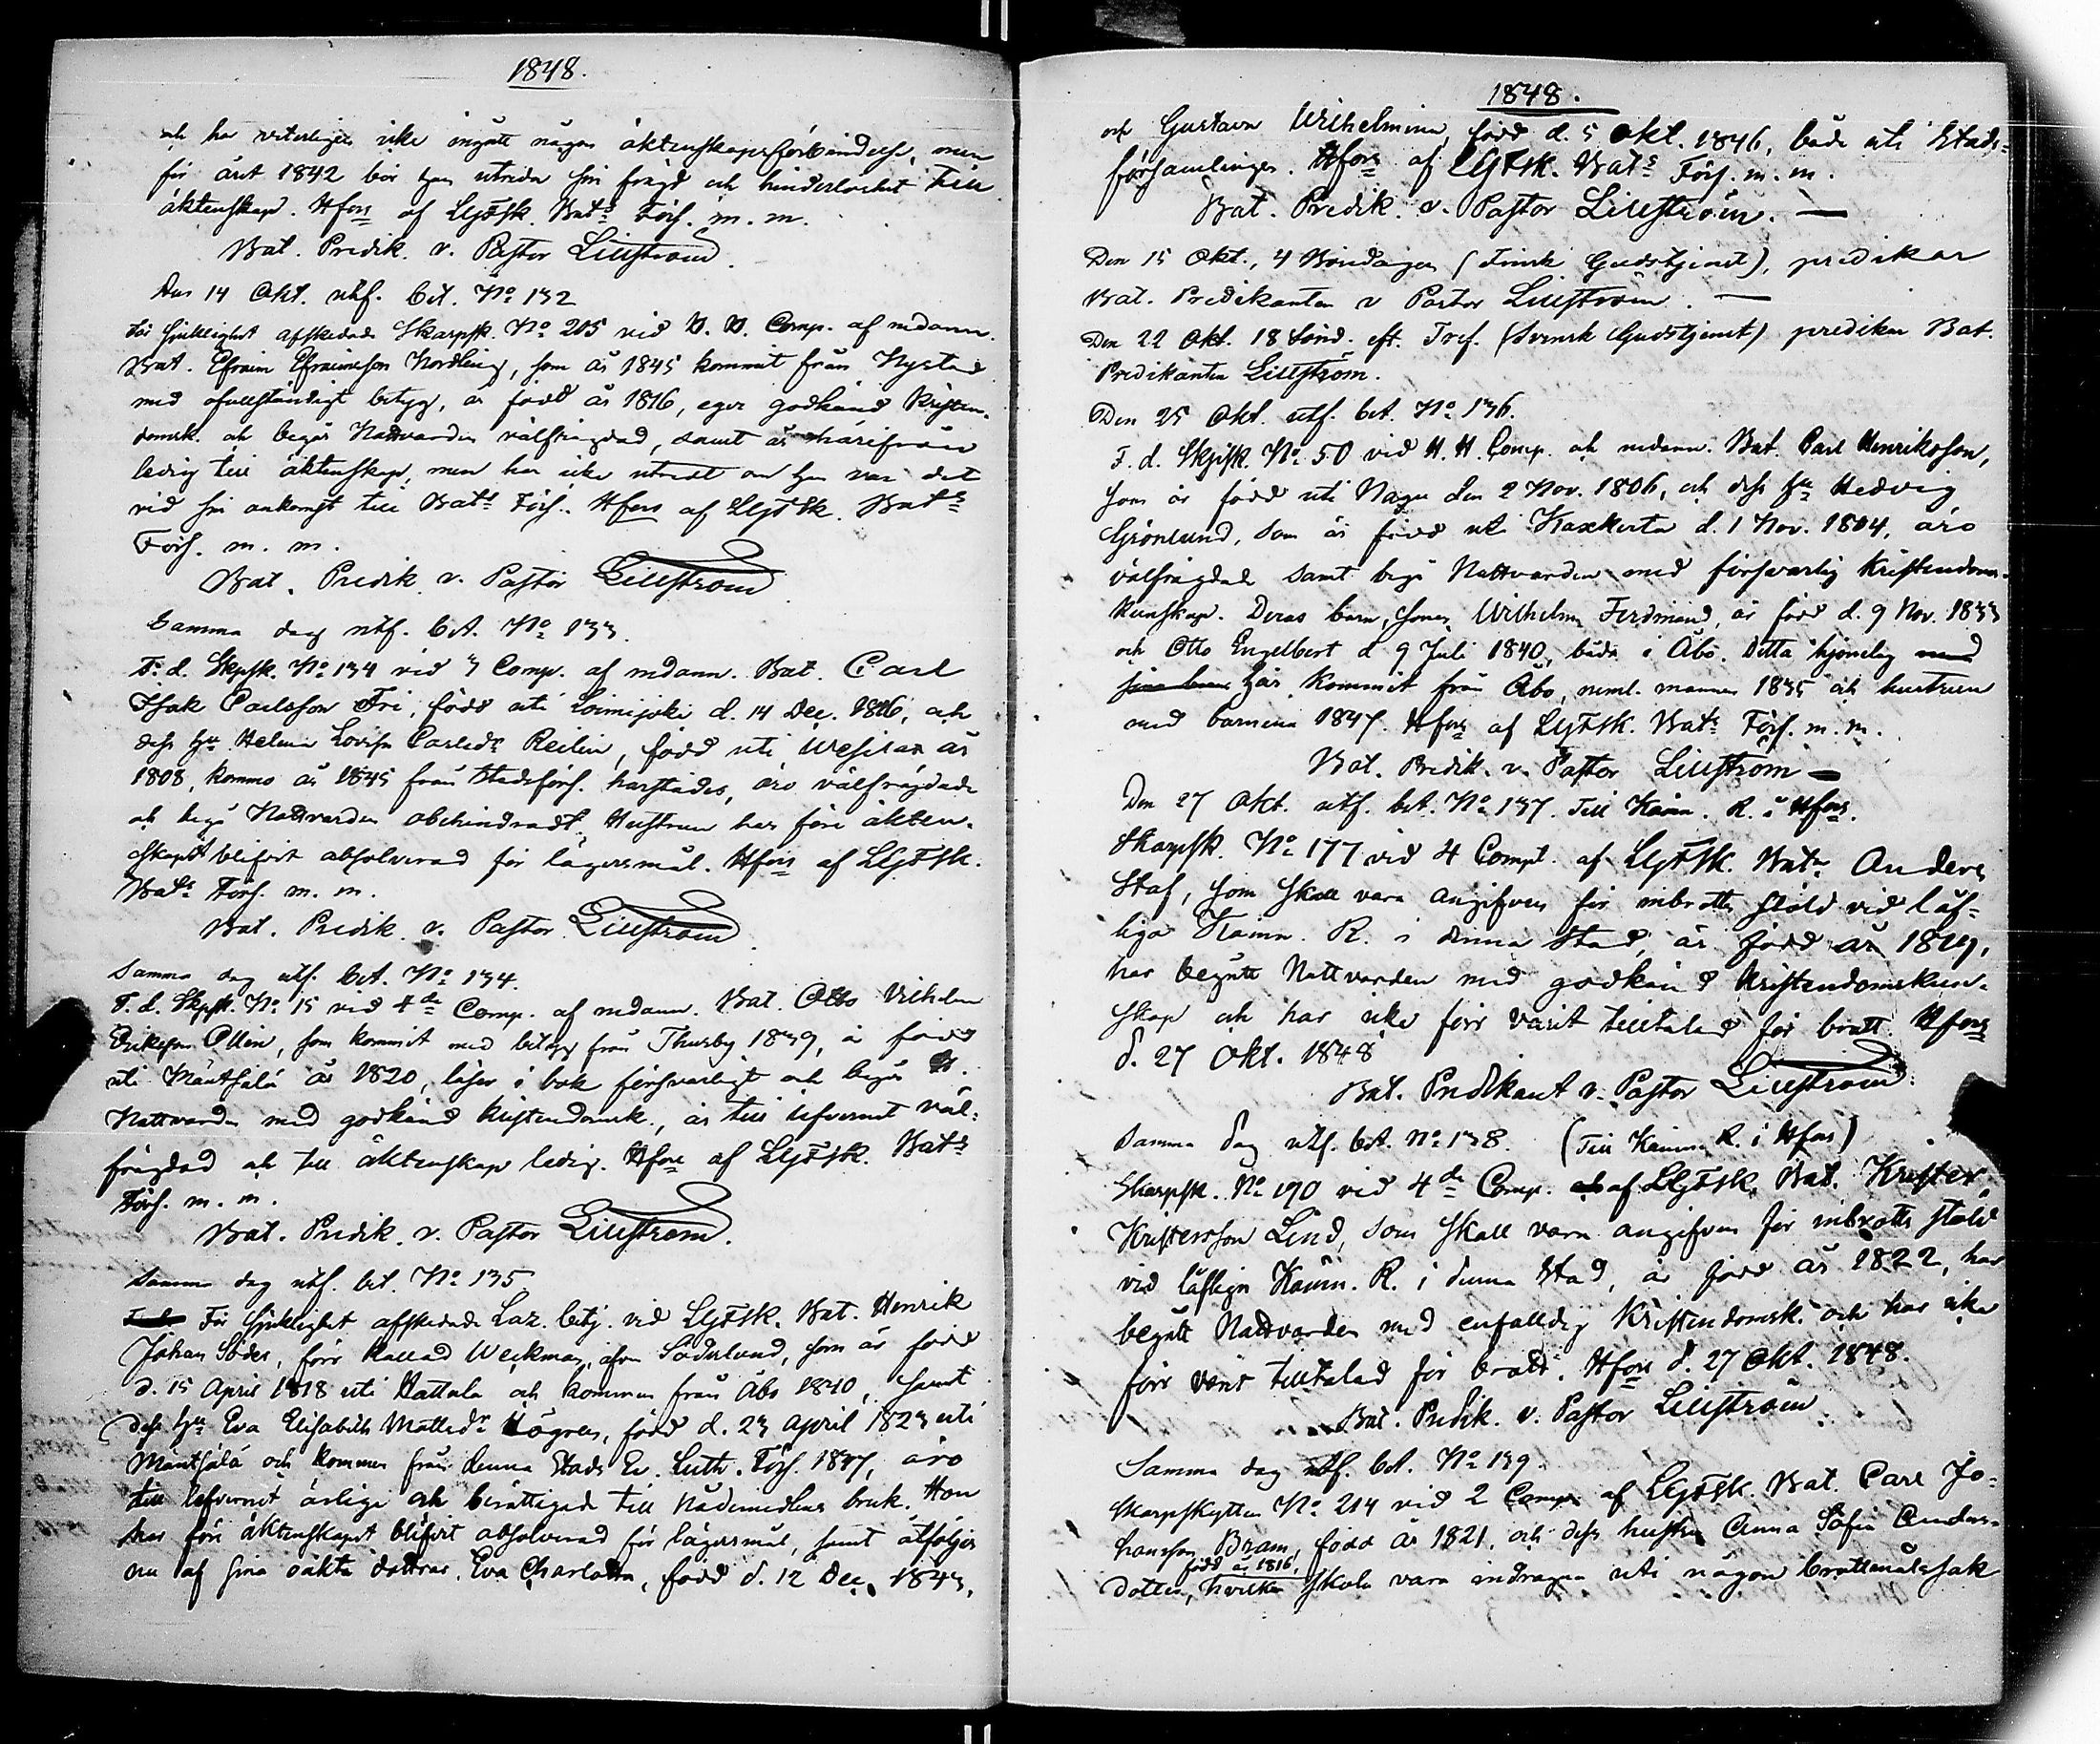 1848.
och har veterligen icke ingått någon äktenskapsförbindelse, men
för året 1842 bör han utreda sin frejd och hinderlöshet till
äktenskap. Hfors af LGFSk. Bats Förs. m. m.
Bat. Predik. v. Pastor Lillström.
Den 14 Okt. utf. bet. No 132
För sjuklighet afskedade Skarpsk. No 205 vid Comp. af ndann.
Bat. Efraim Efraimsson Nordling, som år 1845 kommit från Nystad
med ofullständigt betyg, är född år 1816, eger godkänd Kristen-
domsk. och begår Nattvarden välfrejdad, samt är härifrån
ledig till äktenskap, men har icke utredt om han var det
vid sin ankomst till Bats Förs. Hfors af LGFSk. Bats
Förs. m. m.
Bat. Predik. v. Pastor Lillström
Samma dag utf. bet. No 133.
F. d. Skpsk. No 134 vid 3 Comp. af ndann. Bat. Carl
Isak Carlsson Fri, född uti Loimijoki d. 14 Dec. 1816, och
dess hu Helena Lovisa Carlsdr Reilin, född uti år
1808, komne år 1845 från Stadsförs. härstädes, äro välfrejdade
och begå Nattvarden obehindradt. Hustrun har före äkten-
skapet blifvit absolverad för lägersmål. Hfors af LGFSk.
Bats Förs. m. m.
Bat. Predik. v. Pastor Lillström
Samma dag utf. bet. No 134.
F. d. Skpsk. No 15 vid 4de Comp. af ndann. Bat. Otto Vilhelm
Eriksson Ollin, som kommit med betyg från Thusby 1839, är född
uti Mäntsälä år 1820, läser i bok försvarligt och begår H.
Nattvarden med godkänd kristendomsk., är till lefvernet väl-
frejdad och till äktenskap ledig. Hfors af LGFSk. Bats
Förs. m. m.
Bat. Predik. v. Pastor Lillström.
Samma dag utf. bet. No 135
För sjuklighet afskedade Laz. betj. vid LGFSk. Bat. Henrik
Johan Söder, förr kallad Weckman, äfven Söderlund, som är född
d. 15 April 1818 uti Hattula och kommen från Åbo 1840, samt
dess hu Eva Elisabeth Mattsdr Högren, född d. 23 April 1823 uti
Mäntsälä och kommen från denna Stads Ev. Luth. Förs. 1847, äro
till lefvernet ärliga och berättigade till Nådemedlens bruk. Hon
har före äktenskapet blifvit absolverad för lägersmål, samt åtföljes
nu af sina oäkta döttrar, Eva Charlotta, född d. 12 Dec. 1843,
1848.
och Gustava Wilhelmina, född d. 5 Okt. 1846, båda uti Stads-
församlingen. Hfors af LGFSk. Bats Förs. m. m.
Bat. Predik. v. Pastor Lillström. —
Den 15 Okt., 4 Böndagen (Finsk Gudstjenst), predikar
Bat. Predikanten v Pastor Lillström. —
Den 22 Okt. 18 Sönd. eft. Tref. (Svensk Gudstjenst) predikar Bat.
Predikanten Lillström.
Den 25 Okt. utf. bet. No 136.
F. d. Skpsk. No 50 vid H. H. Comp. och ndann. Bat. Carl Henriksson,
som är född uti Nagu den 2 Nov. 1806, och dess hu Hedvig
Grönlund, som är född uti Kaxkerta d. 1 Nov. 1804, äro
välfrejdade samt begå Nattvarden med försvarlig kristendoms-
kunskap. Deras barn, sonen Wilhelm Ferdinand, är född d. 9 Nov. 1833
och Otto Engelbert d 9 Juli 1840, båda i Åbo. Detta hjonelag med
sina barn har kommit från Åbo, neml. mannen 1835 och hustrun
med barnena 1847. Hfors af LGFSk. Bats Förs. m. m.
Bat. Predik. v. Pastor Lillström —
Den 27 Okt. utf. bet. No 137. Till Kämn. R. i Hfors.
Skarpsk. No 177 vid 4 Compt. af LGFSk. Batn Anders
Staf, som skall vara angifven för inbrotts stöld vid löf-
liga Kämn. R. i denna Stad, är född år 1819,
har begått Nattvarden med godkänd Kristendomskun-
skap och har icke förr varit tilltalad för brott. Hfors
d. 27 Okt. 1848
Bat. Predikant v. Pastor Lillström.
Samma dag utf. bet. No 138. (Till Kämn. R. i Hfors)
Skarpsk. No 190 vid 4de Comp. af LGFSk. Bat. Krister
Kristersson Lind, som skall vara angifven för inbrotts stöld
vid löfliga Kämn. R. i denna Stad, är född år 1822, har
begått Nattvarden med enfalldig Kristendomsk. och har icke
förr varit tilltalad för brott. Hfors d. 27 Okt. 1848.
Bat. Predik. v. Pastor Lillström
Samma dag utf. bet. No 139.
Skarpskytten No 214 vid 2 Comp. af LGFSk. Bat. Carl Jo-
hansson Bram, född år 1821, och dess hustru Anna Sofia Anders-
född år 1816,
dotter, hvilka skola vara indragna uti någon brottmålssak